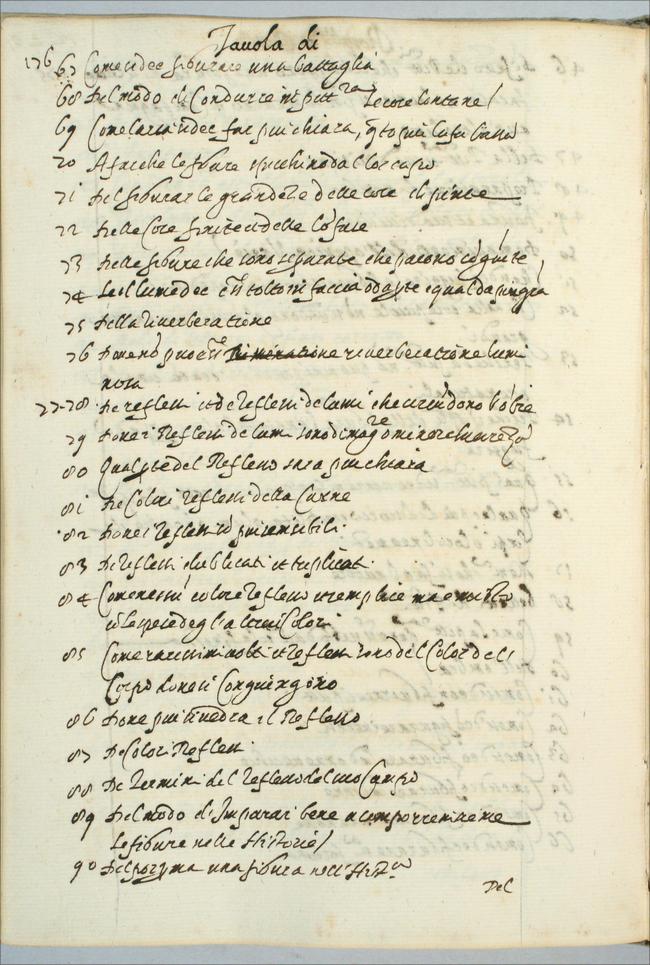 Tauola di
176 67 Come si dee figurare una battaglia
68 Del modo di Condurre in pitt.ra le cose lontane /
69 Come l'aria si dee far piu chiara, q.to piu la fai bassa
70 A far che le figure spicchino dal lor campo
71 Del figurar le grandeze delle cose dipinte
72 Delle Cose finite et delle cõfuse
73 Delle figure che sono separate che paiono cõgiunte
74 Se il lume dee esser tolto in faccia o da parte e qual da piu gr̃a
75 Della riuerberatione
76 Doue nõ puo esser riuerberatione lumi
nosa
77-78 De reflessi et de reflessi de lumi che circũdono l'õbre
79 Doue i Reflessi de lumi sono di mag.re o minore chiarezza
80 Qual parte del Reflesso sara piu chiara
81 De Colori reflessi della Carne
82 Doue i reflessi sõ piu sensibili
83 De reflessi dublicati et triplicati
84 Come nessũ colore reflesso è semplice ma è misto
cõ le specie degl'altri Colori
85 Come rarissime uolte i reflessi sono del Color del
Corpo doue si Congiungono
86 Doue piu si uedra il Reflesso
87 De Colori Reflessi
88 De termini del reflesso del suo Campo
89 Del modo d'Imparar bene a comporre insieme
le figure nelle Historie /
90 Del por p.ma una figura nell'Hist.a
Del